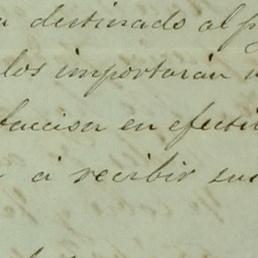 destinado al p
los importarán
faccion en efecti
a recibir sus